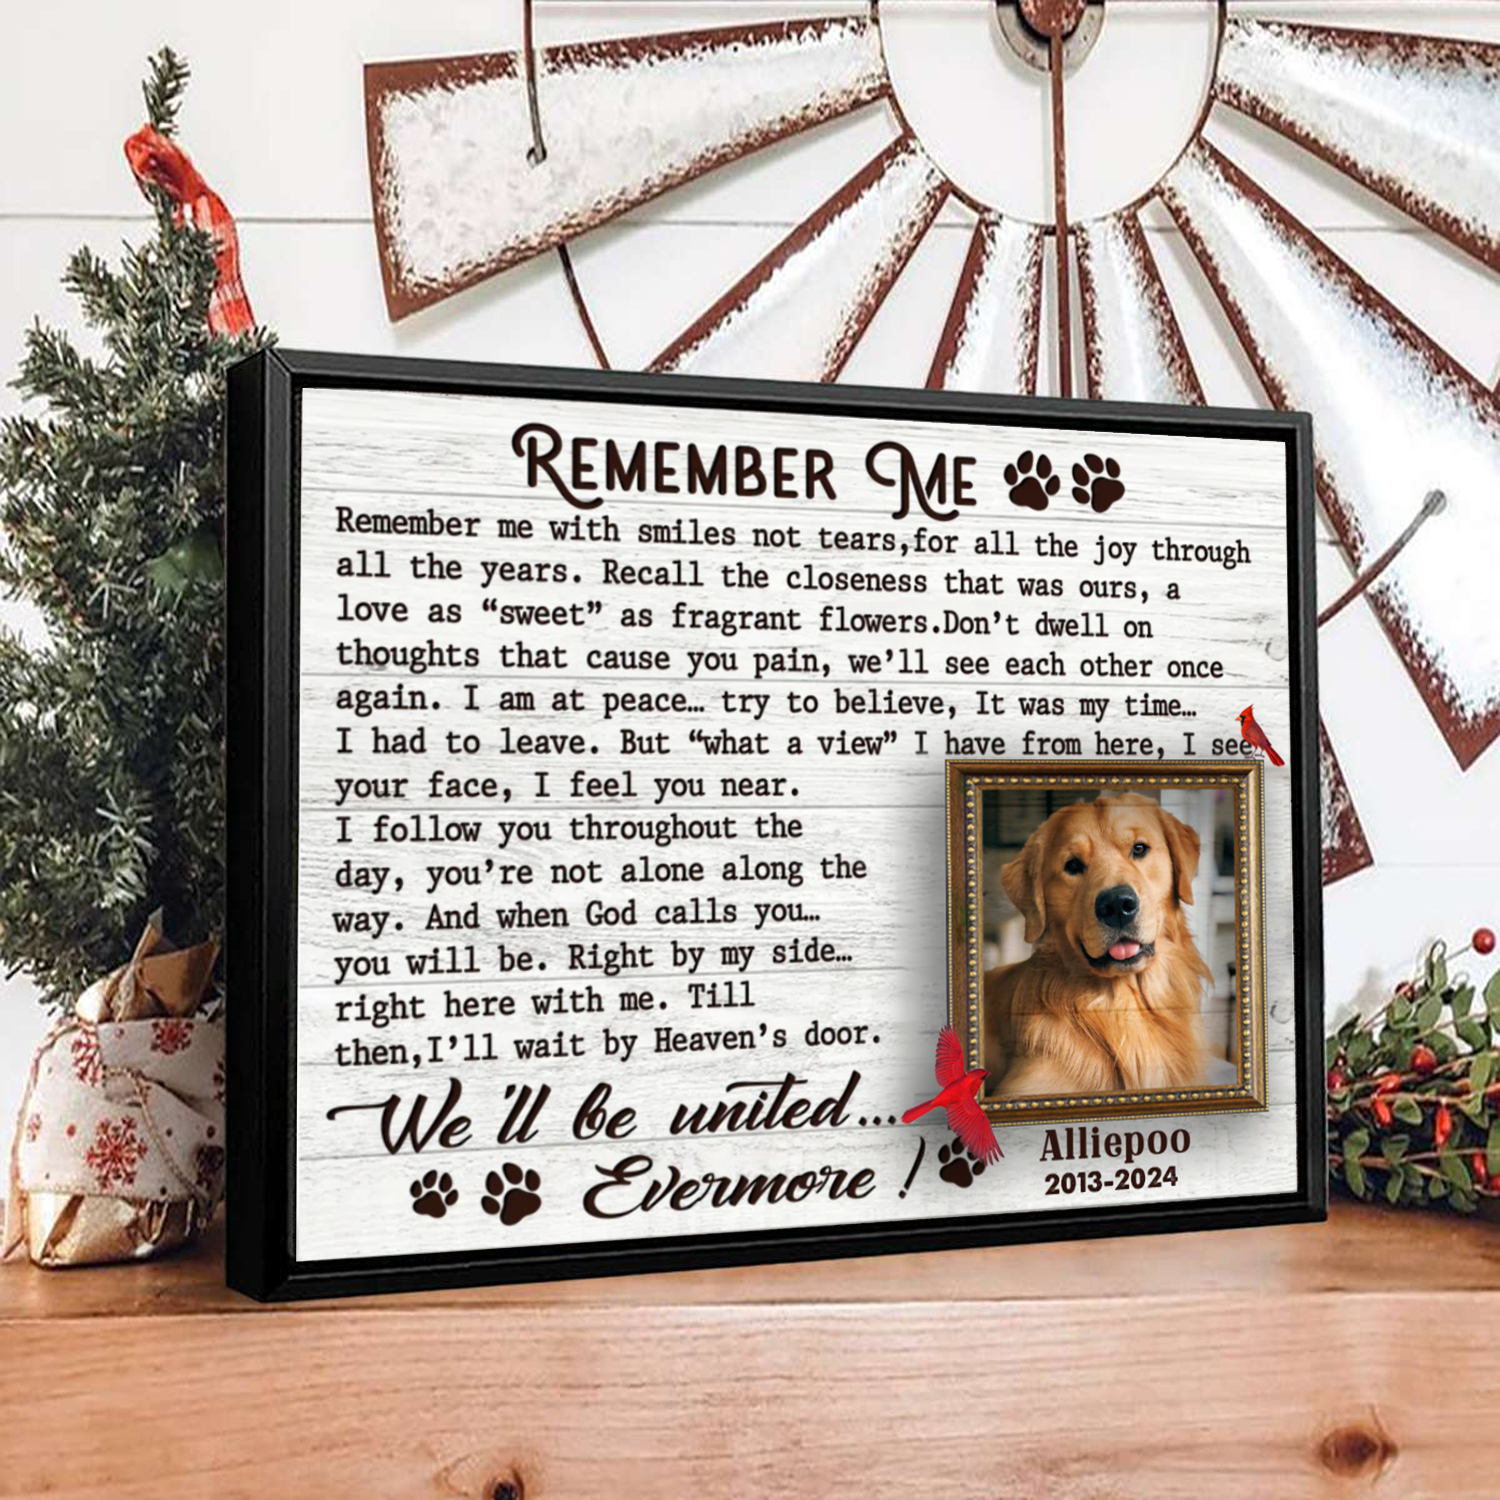 REMEMBER ME
Remember me with smiles not tears,for all the joy through
all the years. Recall the closeness that was ours, a
love as “sweet” as fragrant flowers.Don’t dwell on
thoughts that cause you pain, we’ll see each other once
again. I am at peace… try to believe, It was my time…
I had to leave. But “what a view” I have from here, I see
your face, I feel you near.
I follow you throughout the
day, you’re not alone along the
way. And when God calls you…
you will be. Right by my side…
right here with me. Till
then,I’ll wait by Heaven’s door.
We'll be united...
Evermore !
Alliepoo
2013-2024